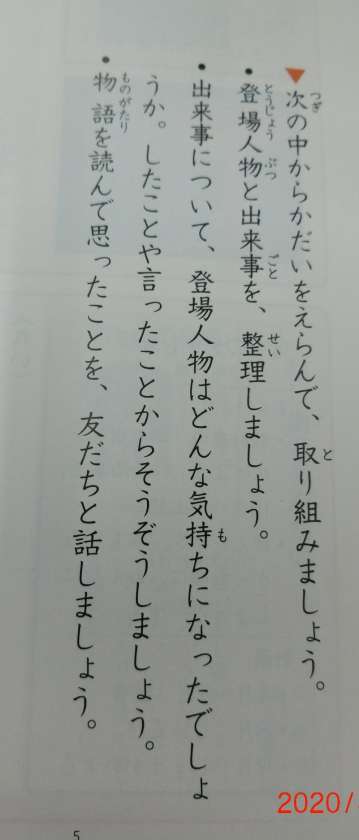 ▼次の中からかだいをえらんで、取り組みましょう。
・登場人物と出来事を、整理しましょう。
・出来事について、登場人物はどんな気持ちになったでしょ
うか。したことや言ったことからそうぞうしましょう。
・物語を読んで思ったことを、友だちと話しましょう。
5
2020/